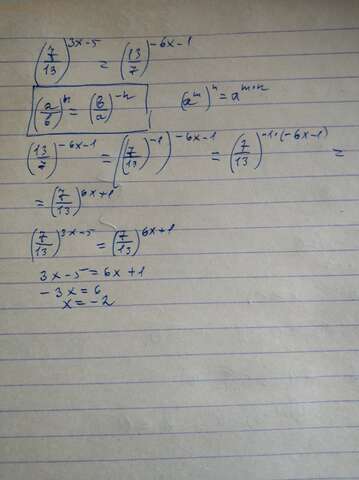 (7/13)^(3x-5) = (13/7)^(-6x-1)
(a/b)^n = (b/a)^(-n) , (a^m)^n = a^(m·n)
(13/7)^(-6x-1) = ((7/13)^(-1))^(-6x-1) = (7/13)^(-1·(-6x-1)) =
= (7/13)^(6x+1)
(7/13)^(3x-5) = (7/13)^(6x+1)
3x-5=6x+1
-3x=6
x=-2